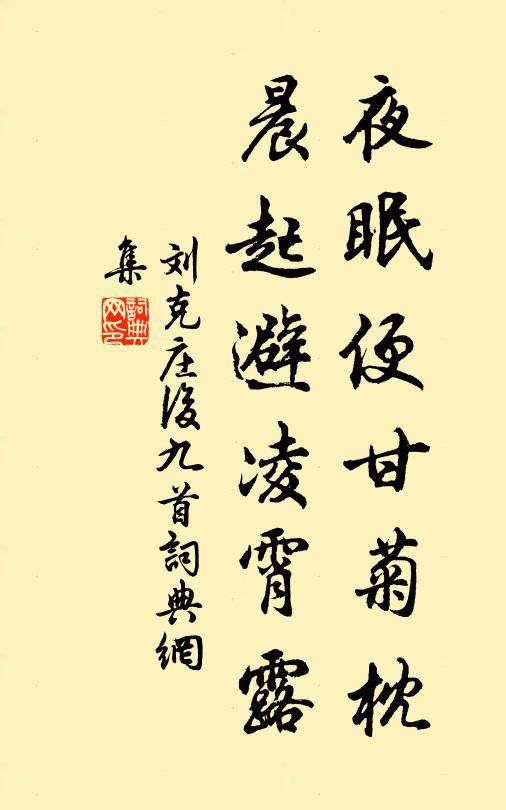 夜眠便甘菊枕
晨起避凌霄露
刘克庄後九首詞典網
集
詞典網印